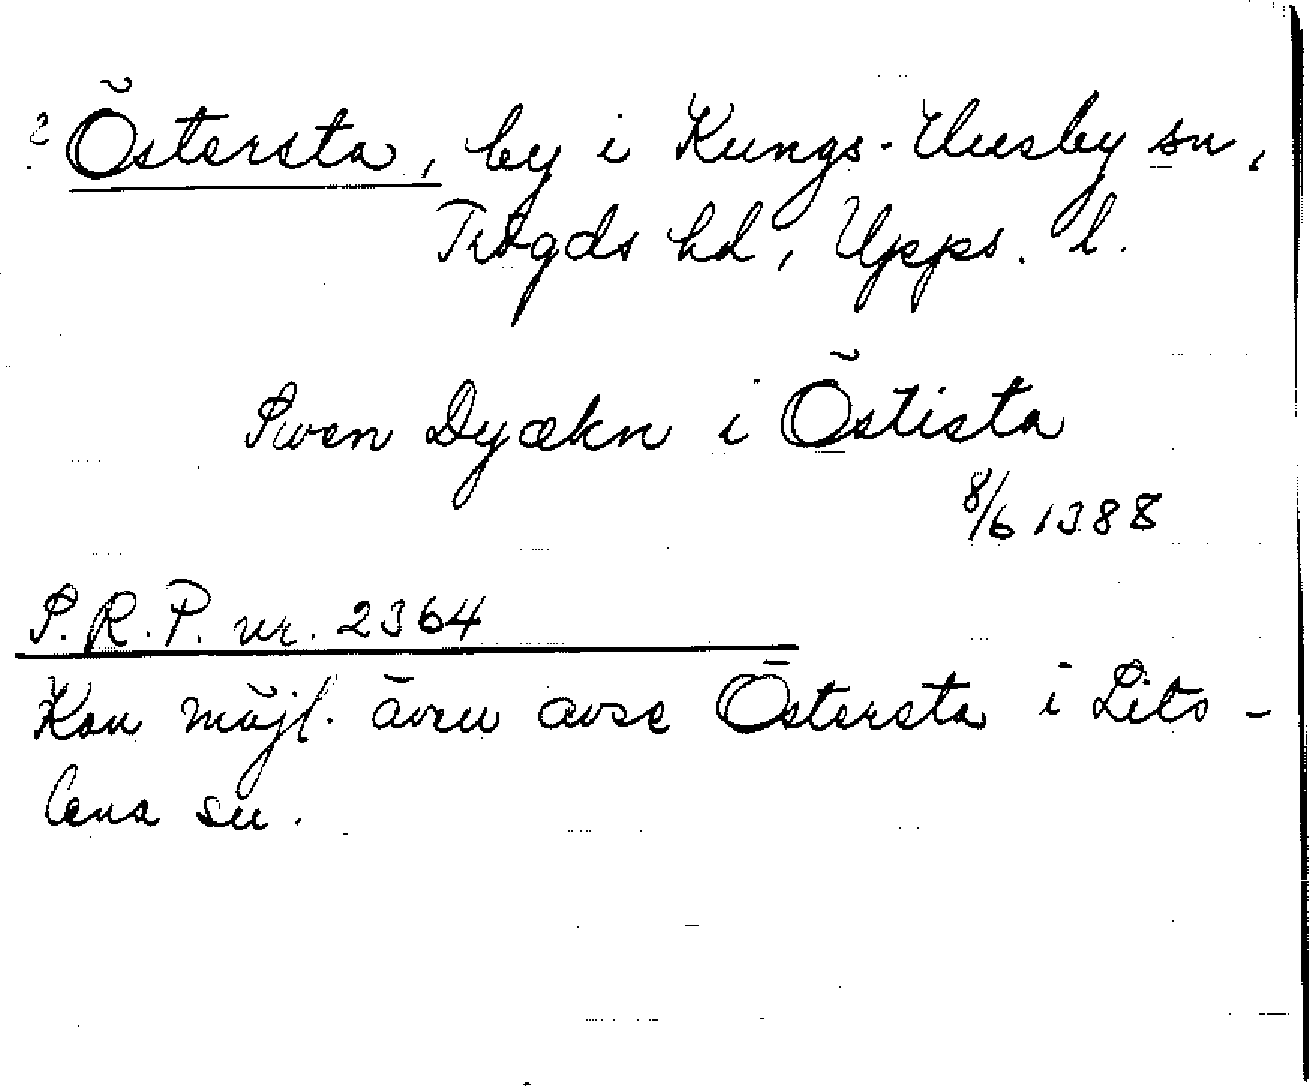 ? Östersta, by i Kungs-Husby sn,
Trögds hd, Upps. l.
Swen Dyækn i Östista
8/6 1388
S.R.P. nr. 2364
Kan möjl. även avse Östersta i Lits-
lena sn.